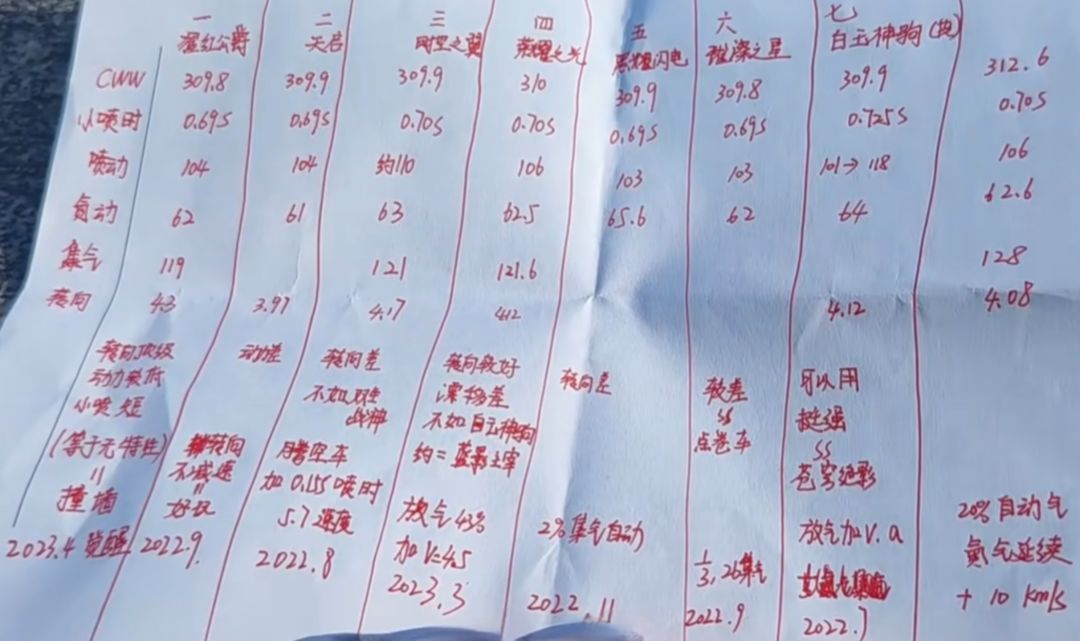 一 二 三 四 五 六 七
猩红公爵 天启 时空之翼 荣耀之光 黑耀闪电 璀璨之星 白玉神驹(战)
CWW 309.8 309.9 309.9 310 309.9 309.8 309.9 312.6
小喷时 0.69s 0.69s 0.70s 0.70s 0.69s 0.69s 0.725s 0.70s
喷动 104 104 约110 106 103 103 101→118 106
氮动 62 61 63 62.5 65.6 62 64 62.6
集气 119 121 121.6 128
转向 4.3 3.97 4.17 4.12 4.12 4.08
转向顶级
动力较低
小喷短
(等于无特性)
=
撞墙
2023.4 觉醒
动力差
转向
不减速
=
好玩
2022.9
转向差
不如双生
战神
滞空车
加0.15s喷时
5.7速度
2022.8
转向较好
漂移差
不如白玉神驹
约=蓝影主宰
放气43%
加V=4.5
2023.3
转向差
2%集气自动
2022.11
较差
SS
点卷车
1/3,26集气
2022.9
可以用
挺强
SS
苍穹绝影
放气加V.a
2022.7
20%自动气
氮气延续
+10 km/s